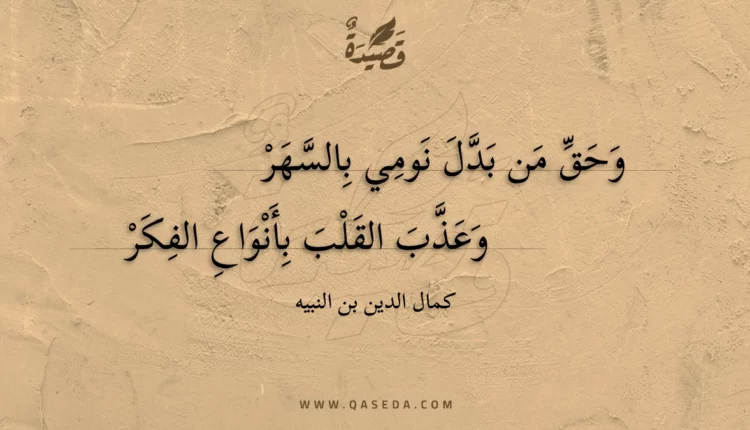 قَصِيدَةٌ
وَحَقِّ مَن بَدَّلَ نَومِي بِالسَّهَرْ
وَعَذَّبَ القَلْبَ بِأَنْوَاعِ الفِكَرْ
كمال الدين بن النبيه
WWW.QASEDA.COM